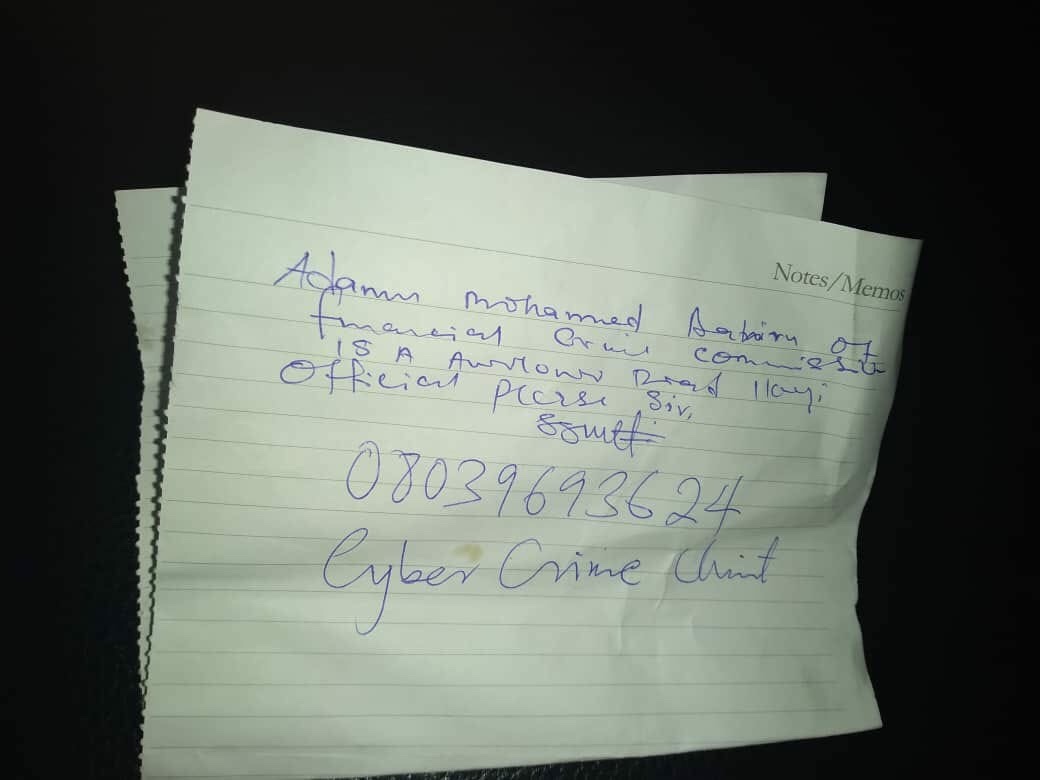 Notes/Memos
Adamu Mohammed of
financial Crime commission
15 A Awolowo Road Ikoyi
Official Please Sir,
08039693624
Cyber Crime